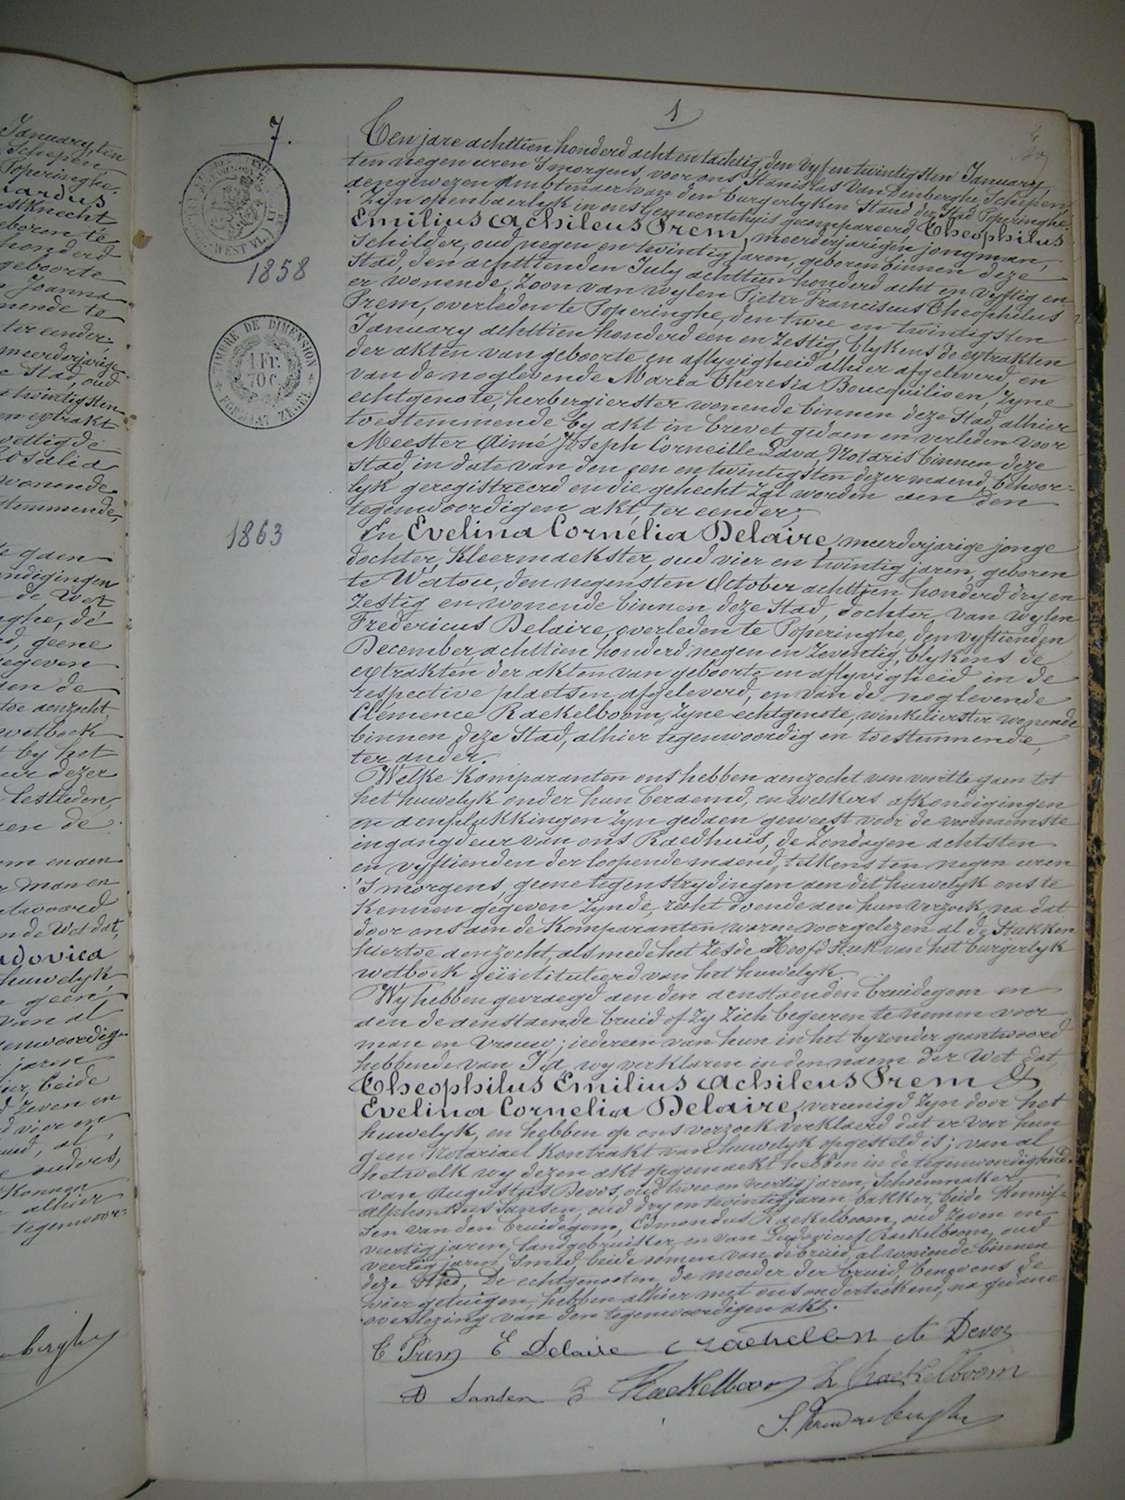 January, ten
Schepen
Poperinghe,
ardus
stknecht
boren te
honderd
geboorte
Joanna
nende te
ter eender
meerderjarige
Stad, oud
twintigsten
extrakt
wettig de
Rosalia
wonende
stemmende,
gaen
ndigingen
de Wet
nghe, de
geene
gegeven
den de
toe aenzocht
wetboek
by het
ur dezer
lestleden,
en de
man en
antwoord
in de Wet dat,
udovica
huwelyk
geen,
van al
genwoordig-
jaren
beide
zeven en
vier en
al
ouders,
Konnen
alhier
tegenwoor-
berghe
1
7.
WEST VL.
1858
TIMBRE DE DIMENSION
1 FR.
70 C.
FORMAAT ZEGEL
1863
Ten jare achttien honderd acht en tachtig, den vyf en twintigsten January,
ten negen uren 's morgens, voor ons Stanislas Van Denberghe, Schepen
aengewezen Ambtenaer van den Burgerlyken Stand der Stad Poperinghe,
Zyn openbaerlyk in ons Gemeentehuis gecompareerd, Theophilus
Emilius Achileus Prem, meerderjarigen jongman,
Schilder, oud negen en twintig jaren, geboren binnen deze
Stad, den achttienden July achttien honderd acht en vyftig en
er wonende, Zoon van wylen Pieter Franciscus Theophilus
Prem, overleden te Poperinghe, den twee en twintigsten
January achttien honderd een en zestig, blykens de extrakten
der akten van geboorte en aflyvigheid alhier afgeleverd, en
van de noglevende Maria Theresia Boucquilioen, Zyne
echtgenote, herbergierster wonende binnen deze Stad, alhier
toestemmende by akt in brevet gedaen en verleden voor
Meester Aimé Joseph Corneille Lava, Notaris binnen deze
Stad, in date van den een en twintigsten dezer maend, behoor-
lyk geregistreerd en die gehecht zal worden aen den
tegenwoordigen akt, ter eender;
En Evelina Cornélia Delaire, meerderjarige jonge
dochter, Kleermaekster, oud vier en twintig jaren, geboren
te Watou, den negensten October achttien honderd dry en
Zestig en wonende binnen deze Stad, dochter van wylen
Fredericus Delaire, overleden te Poperinghe, den vyftienden
December achttien honderd negen en zeventig, blykens de
extrakten der akten van geboorte en aflyvigheid in de
respective plaetsen afgeleverd, en van de noglevende
Clémence Raekelboom, Zyne echtgenote, winkelierster wonende
binnen deze Stad, alhier tegenwoordig en toestemmende,
ter ander.
Welke Komparanten ons hebben aenzocht van voort te gaen tot
het huwelyk onder hun beraemd, en welkers afkondigingen
en aenplakkingen zyn gedaen geweest voor de voornaemste
ingangdeur van ons Raedhuis, de Zondagen achtsten
en vyftienden der loopende maend, telkens ten negen uren
's morgens, geene tegenstrydingen aen dit huwelyk ons te
Kennen gegeven zynde, recht doende aen hun verzoek, na dat
door ons aen de Komparanten waren voorgelezen al de Stukken
hiertoe aenzocht, als mede het Zesde Hoofdstuk van het burgerlyk
wetboek geïntituleerd van het huwelyk.
Wy hebben gevraegd aen den aenstaenden bruidegom en
aen de aenstaende bruid of Zy Zich begeeren te nemen voor
man en vrouw; iedereen van hun in het byzonder geantwoord
hebbende van Ja, wy verklaren in den naem der Wet dat,
Theophilus Emilius Achileus Prem &
Evelina Cornelia Delaire, vereenigd zyn door het
huwelyk, en hebben op ons verzoek verklaerd dat er voor hun
geen Notariael Kontrakt van huwelyk opgesteld is; van al
hetwelk wy dezen akt opgemaekt hebben in de tegenwoordigheid
van Augustus Devos, oud twee en veertig jaren, Schoenmaker,
Alphonsus Sansen, oud dry en twintig jaren, bakker, beide Kennis-
sen van den bruidegom, Edmondus Raekelboom, oud Zeven en
veertig jaren, landgebruiker, en van Ludovicus Raekelboom, oud
veertig jaren, Smid, beide oomen van de bruid, al wonende binnen
deze Stad. De echtgenooten, de moeder der bruid, benevens de
vier getuigen, hebben alhier met ons onderteekend, na gedane
overlezing van den tegenwoordigen akt.
T Prem E Delaire A Devos
A Sansen E Raekelboom L Raekelboom
S. Vandenberghe